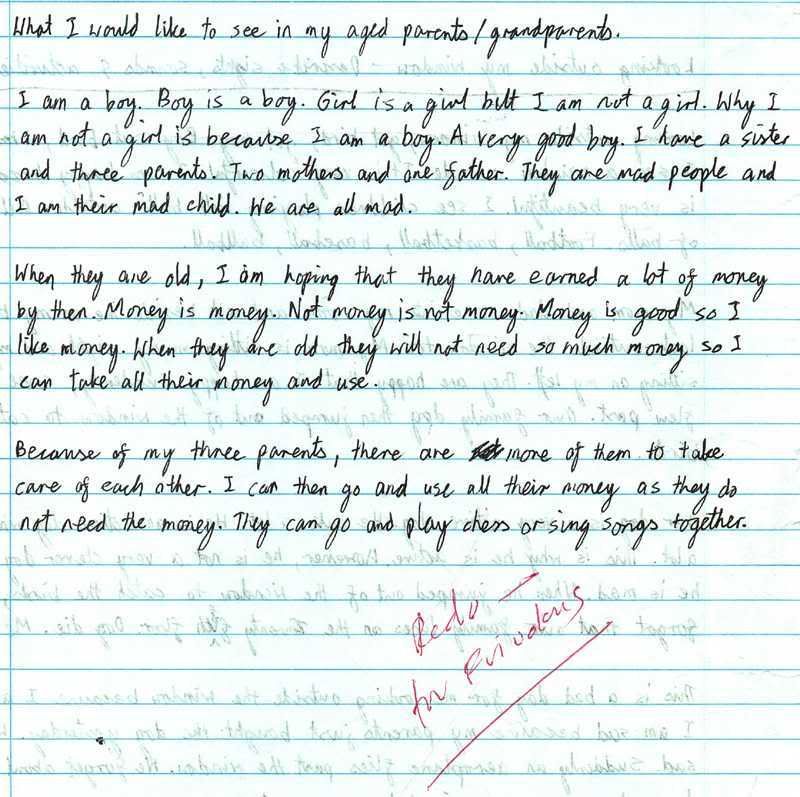 What I would like to see in my aged parents/grandparents.
I am a boy. Boy is a boy. Girl is a girl but I am not a girl. Why I
am not a girl is because I am a boy. A very good boy. I have a sister
and three parents. Two mothers and one father. They are mad people and
I am their mad child. We are all mad.
When they are old, I am hoping that they have earned a lot of money
by then. Money is money. Not money is not money. Money is good so I
like money. When they are old they will not need so much money so I
can take all their money and use.
Because of my three parents, there are more of them to take
care of each other. I can then go and use all their money as they do
not need the money. They can go and play chess or sing songs together.
Redo —